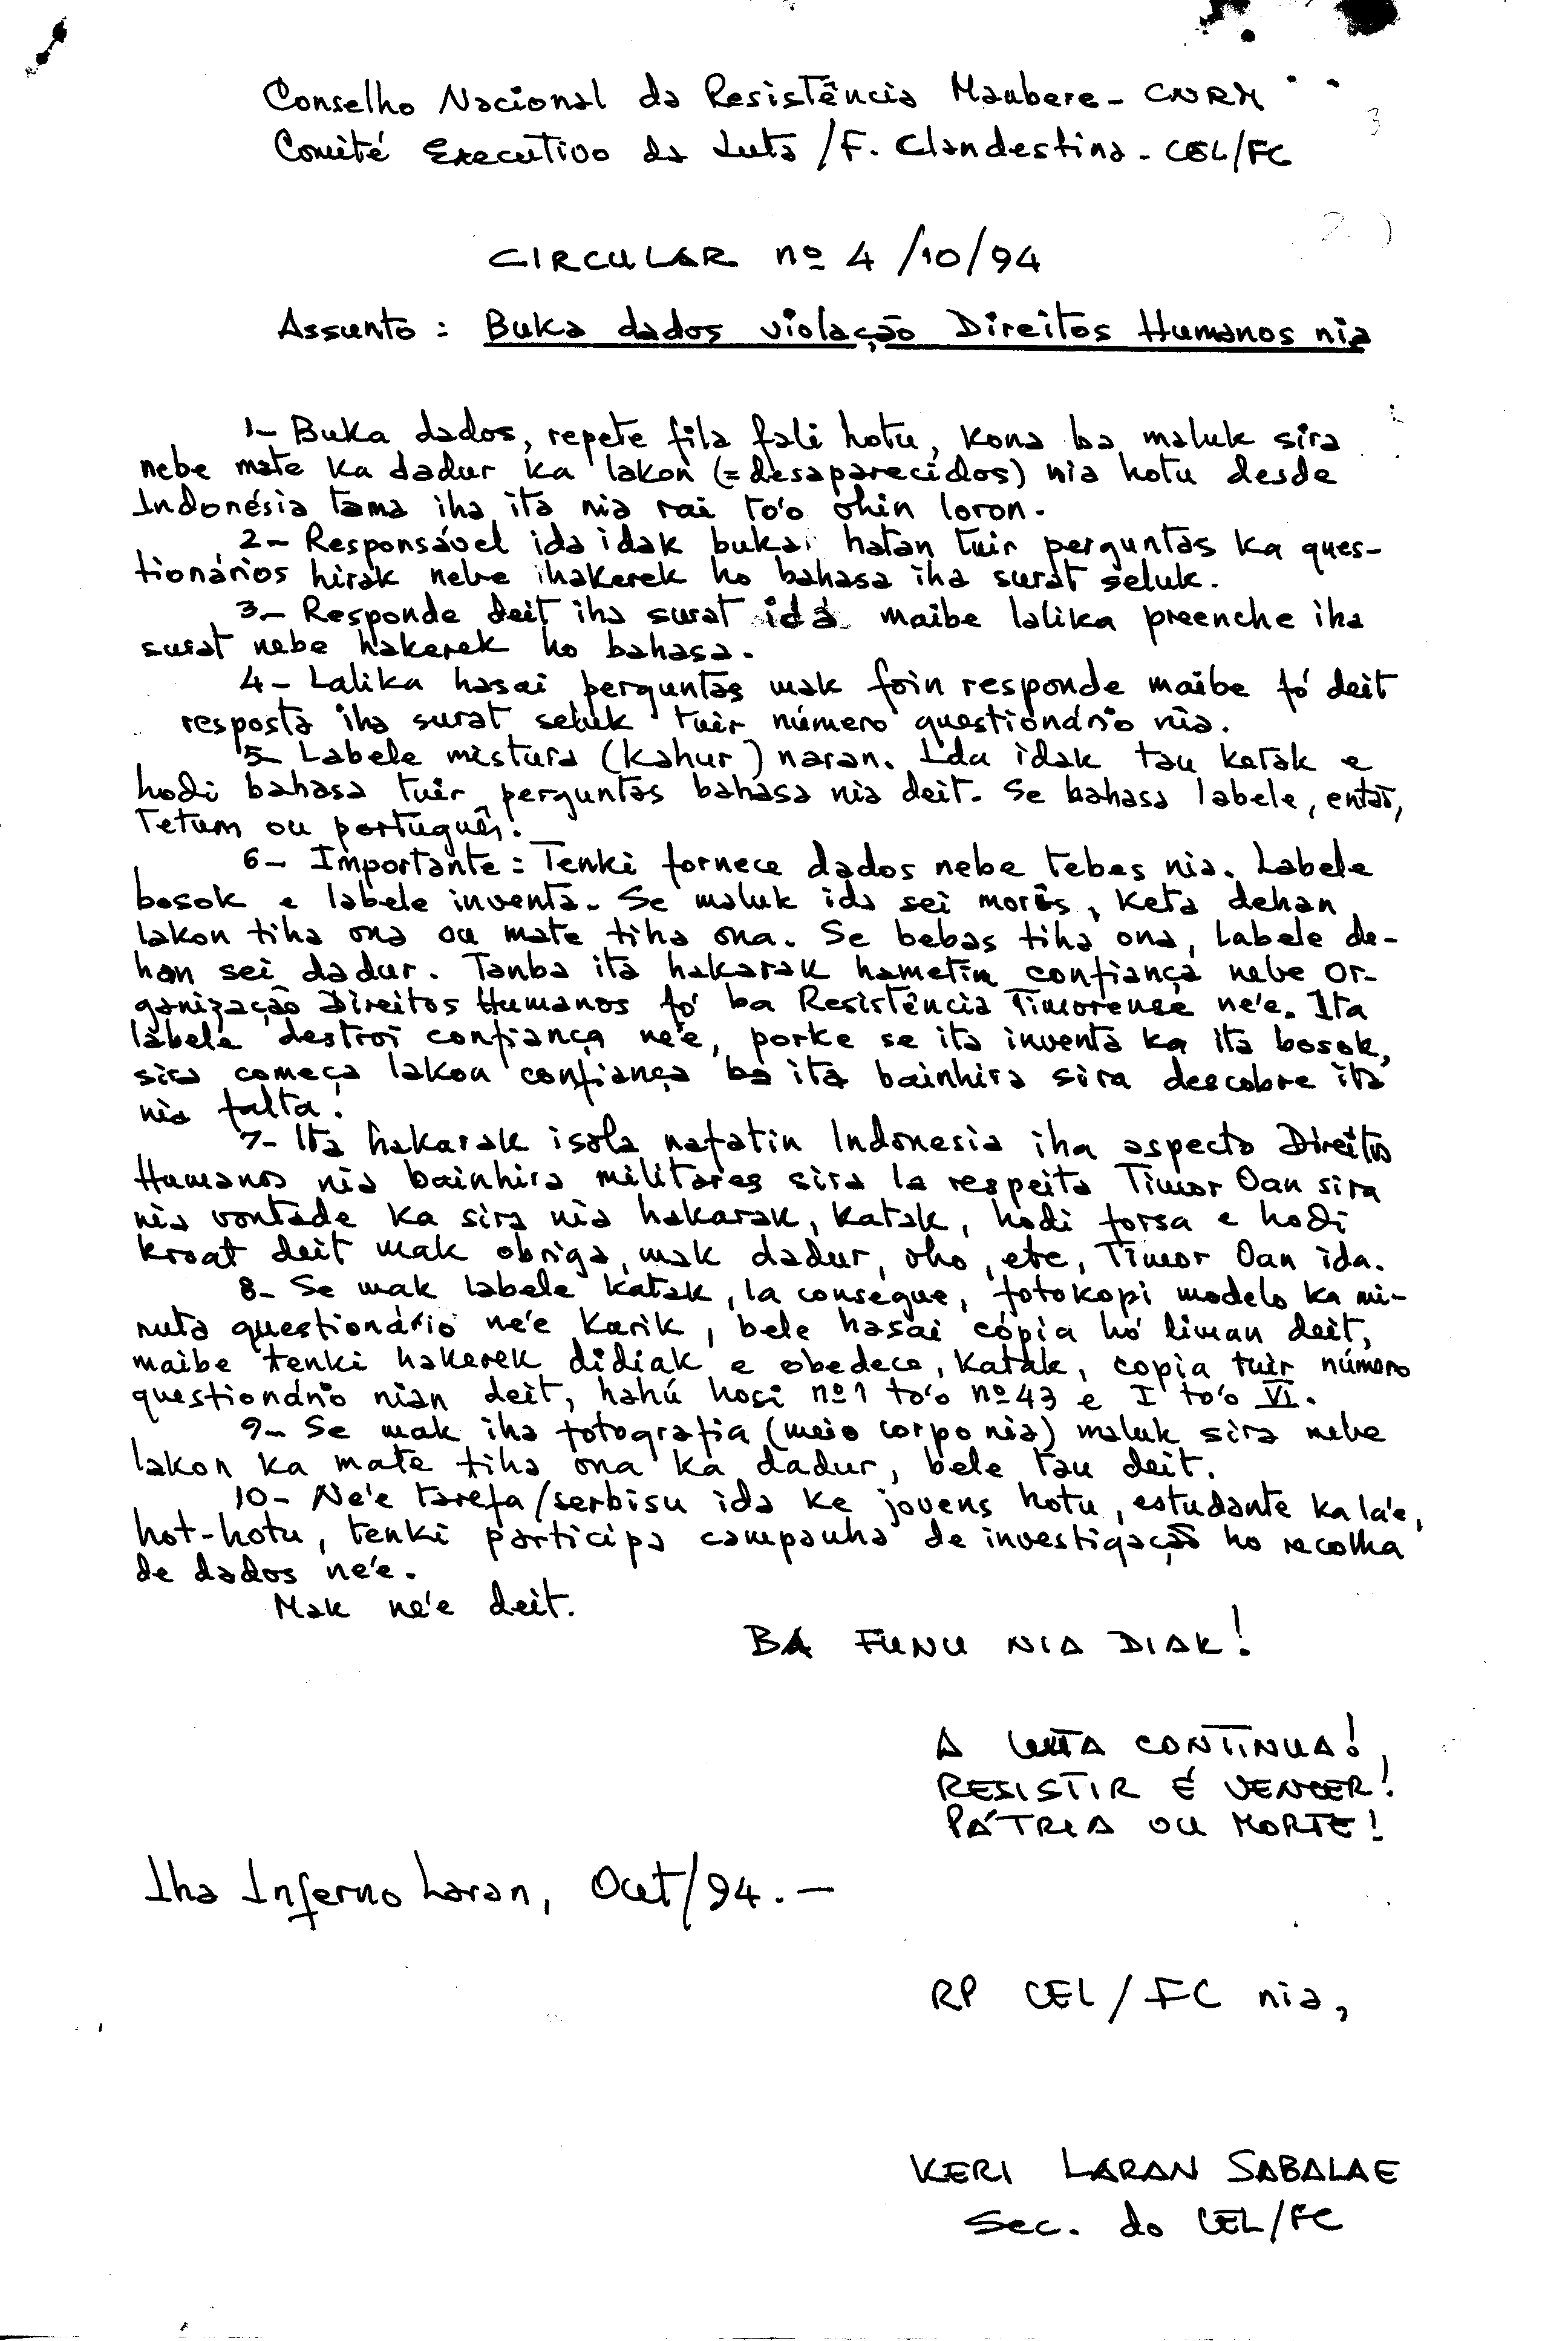 Conselho Nacional da Resistência Maubere - CNRM
3
Comité Executivo da Luta /F. Clandestina - CEL/FC
2.)
CIRCULAR nº 4 /10/94
Assunto : Buka dados violação Direitos Humanos nia
1- Buka dados, repete fila fali hotu, kona ba maluk sira
nebe mate ka dadur ka lakon (= desaparecidos) nia hotu desde
Indonésia tama iha ita nia rai to'o ohin loron.
2- Responsável ida idak buka hatan tuir perguntas ka ques-
tionários hirak nebe hakerek ho bahasa iha surat seluk.
3- Responde deit iha surat ida maibe lalika preenche iha
surat nebe hakerek ho bahasa.
4- Lalika hasai perguntas mak foin responde maibe fó deit
resposta iha surat seluk tuir número questionário nia.
5- Labele mistura (kahur) naran. Ida idak tau katak e
hodi bahasa tuir perguntas bahasa nia deit. Se bahasa labele, entaõ,
Tetum ou português.
6- Importante : Tenki fornece dados nebe tebes nia. Labele
bosok e labele inventa. Se maluk ida sei moris, keta dehan
lakon tiha ona ou mate tiha ona. Se bebas tiha ona, labele de-
han sei dadur. Tanba ita hakarak hametin confiança nebe Or-
ganização Direitos Humanos fó ba Resistência Timorense ne'e. Ita
labele destroi confiança ne'e, porke se ita inventa ka ita bosok,
sira começa lakon confiança ba ita bainhira sira descobre ita
nia falta!
7- Ita hakarak isola nafatin Indonesia iha aspecto Direitos
Humanos nia bainhira militares sira la respeita Timor Oan sira
nia vontade ka sira nia hakarak, katak, hodi forsa e hodi
kroat deit mak obriga, mak dadur, oho, etc, Timor Oan ida.
8- Se mak labele katak, la consegue, fotokopi modelo ka mi-
nuta questionário ne'e karik, bele hasai cópia hó liman deit,
maibe tenki hakerek didiak e obedece, katak, copia tuir número
questionário nian deit, hahú hosi nº 1 to'o nº 43 e I to'o VI.
9- Se mak iha fotografia (meio corpo nia) maluk sira nebe
lakon ka mate tiha ona ka dadur, bele tau deit.
10- Ne'e tarefa/serbisu ida ke jovens hotu, estudante ka la'e,
hot-hotu, tenki participa campanha de investigação ho recolha
de dados ne'e.
Mak ne'e deit.
BA FUNU NIA DIAK!
A LUTA CONTINUA!
RESISTIR É VENCER!
PÁTRIA OU MORTE!
Iha Inferno Laran, Out/94. —
RP CEL/FC nia,
KERI LARAN SABALAE
Sec. do CEL/FC